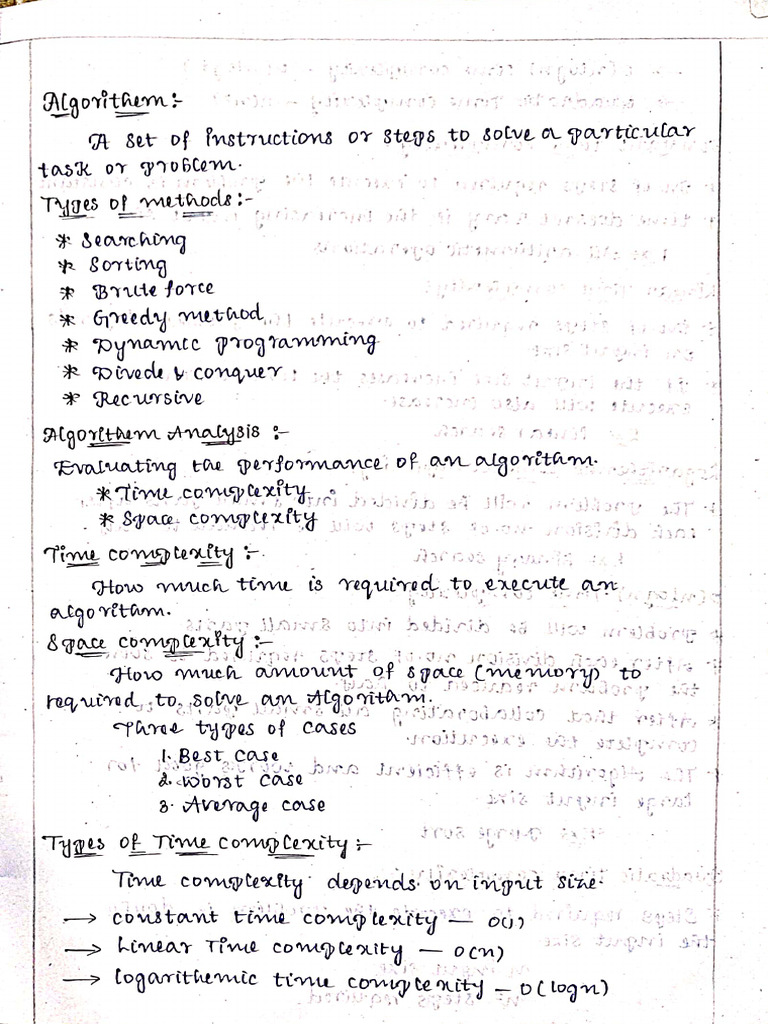 Algorithem :-
A set of instructions or steps to solve a particular
task or problem.
Types of methods :-
* Searching
* Sorting
* Brute force
* Greedy method
* Dynamic programming
* Divede & conquer
* Recursive
Algorithem Analysis :-
Evaluating the performance of an algorithm.
* Time complexity
* Space complexity
Time complexity :-
How much time is required to execute an
algorithm.
Space complexity :-
How much amount of space (memory) to
required to solve an Algorithm.
Three types of cases
1. Best case
2. worst case
3. Average case
Types of Time complexity :-
Time complexity depends on input size.
→ constant time complexity - O(1)
→ Linear Time complexity - O(n)
→ logarithemic time complexity - O(logn)